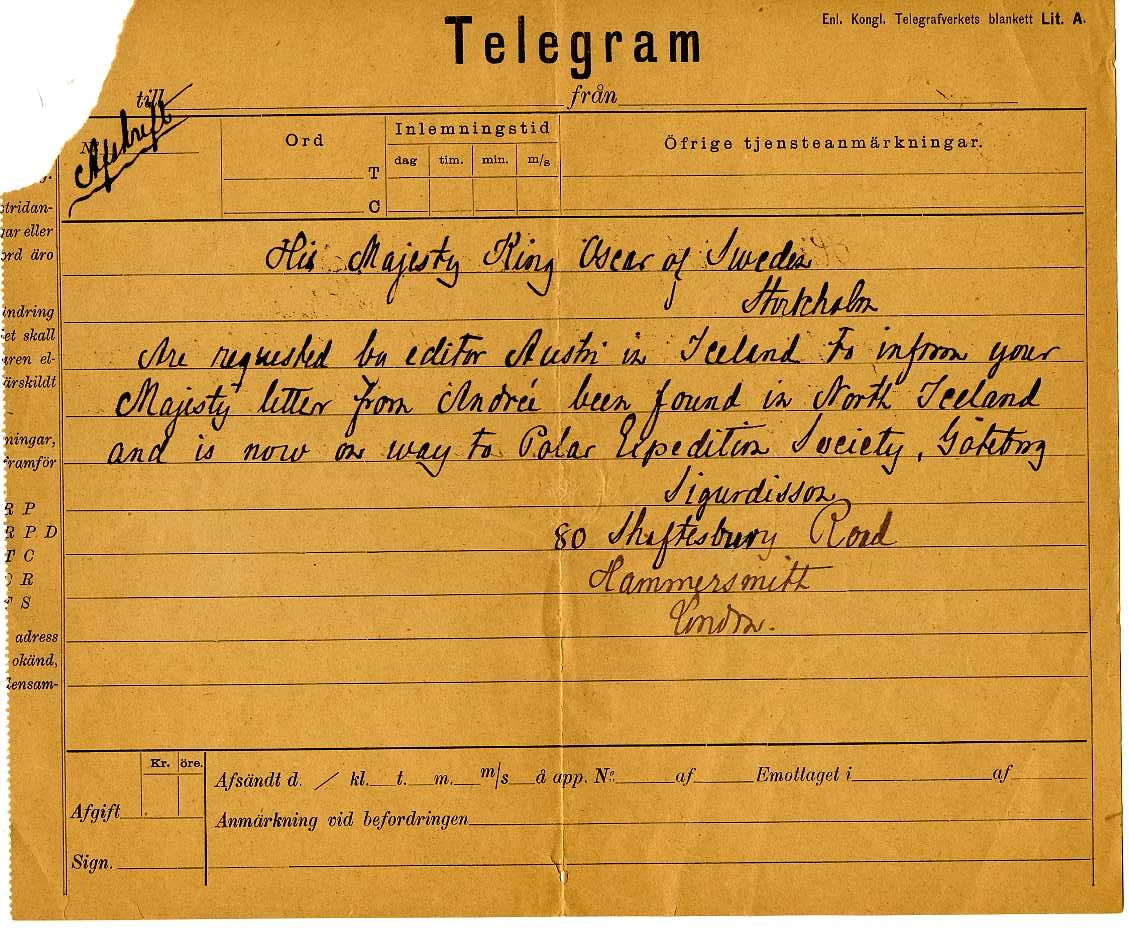 Enl. Kongl. Telegrafverkets blankett Lit. A.
Telegram
till från
Afskrift
Ord
T
C
Inlemningstid
dag tim. min. m/s
Öfrige tjensteanmärkningar.
tridan-
ar eller
ord äro
ändring
et skall
uren el-
ärskildt
ningar,
framför
R P
R P D
T C
R
S
adress
okänd,
lensam-
His Majesty King Oscar of Sweden
Stockholm
Are requested by editor Austri in Iceland to inform your
Majesty letter from Andrée been found in North Iceland
and is now on way to Polar Expedition Society, Göteborg
Sigurdisson
80 Shaftesbury Road
Hammersmith
London.
Kr. öre.
Afgift
Sign.
Afsändt d. / kl. t. m. m/s å app. No. af Emottaget i af
Anmärkning vid befordringen